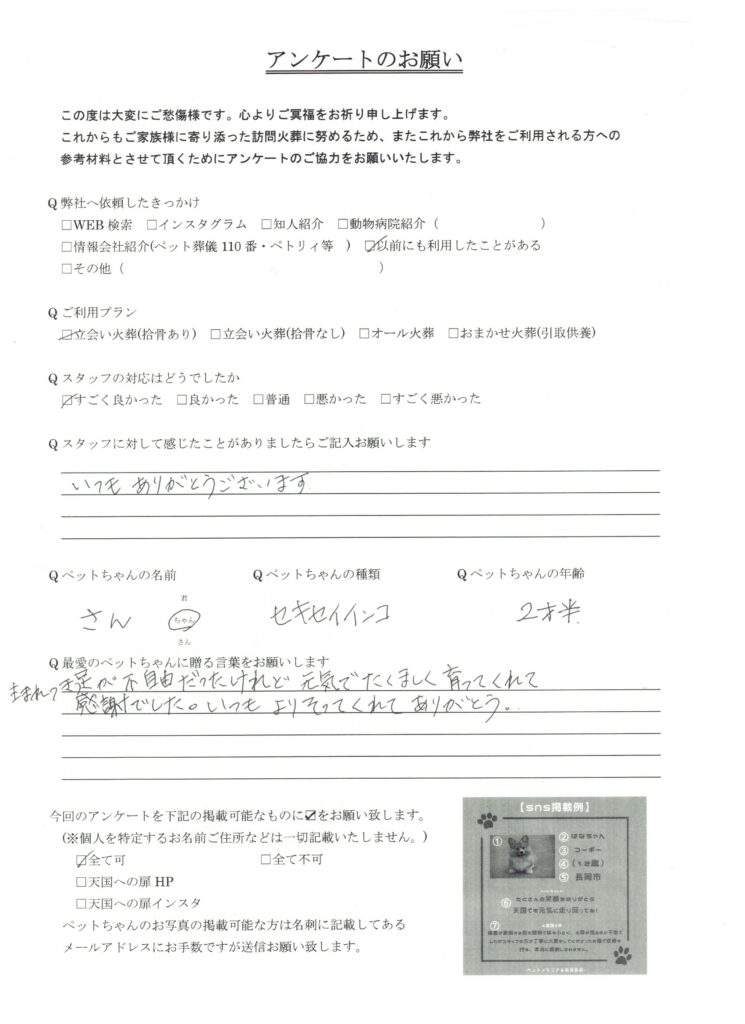 アンケートのお願い
この度は大変にご愁傷様です。心よりご冥福をお祈り申し上げます。
これからもご家族様に寄り添った訪問火葬に努めるため、またこれから弊社をご利用される方への
参考材料とさせて頂くためにアンケートのご協力をお願いいたします。
Q 弊社へ依頼したきっかけ
□WEB 検索 □インスタグラム □知人紹介 □動物病院紹介（ ）
□情報会社紹介(ペット葬儀 110 番・ペトリィ等 ) ☑以前にも利用したことがある
□その他（ ）
Q ご利用プラン
☑立会い火葬(拾骨あり) □立会い火葬(拾骨なし) □オール火葬 □おまかせ火葬(引取供養)
Q スタッフの対応はどうでしたか
☑すごく良かった □良かった □普通 □悪かった □すごく悪かった
Q スタッフに対して感じたことがありましたらご記入お願いします
いつも ありがとうございます
Q ペットちゃんの名前 Q ペットちゃんの種類 Q ペットちゃんの年齢
君
さん ちゃん セキセイインコ 2才半
さん
Q 最愛のペットちゃんに贈る言葉をお願いします
生まれつき足が不自由だったけれど 元気でたくましく育ってくれて
感謝でした。いつも よりそってくれて ありがとう。
今回のアンケートを下記の掲載可能なものに☑をお願い致します。
(※個人を特定するお名前ご住所などは一切記載いたしません。)
☑全て可 □全て不可
□天国への扉 HP
□天国への扉インスタ
ペットちゃんのお写真の掲載可能な方は名刺に記載してある
メールアドレスにお手数ですが送信お願い致します。
【sns掲載例】
① ② はなちゃん
③ コーギー
④ (18歳)
⑤ 長岡市
⑥ たくさんの笑顔をありがとう
天国でも元気に走り回ってね!
⑦